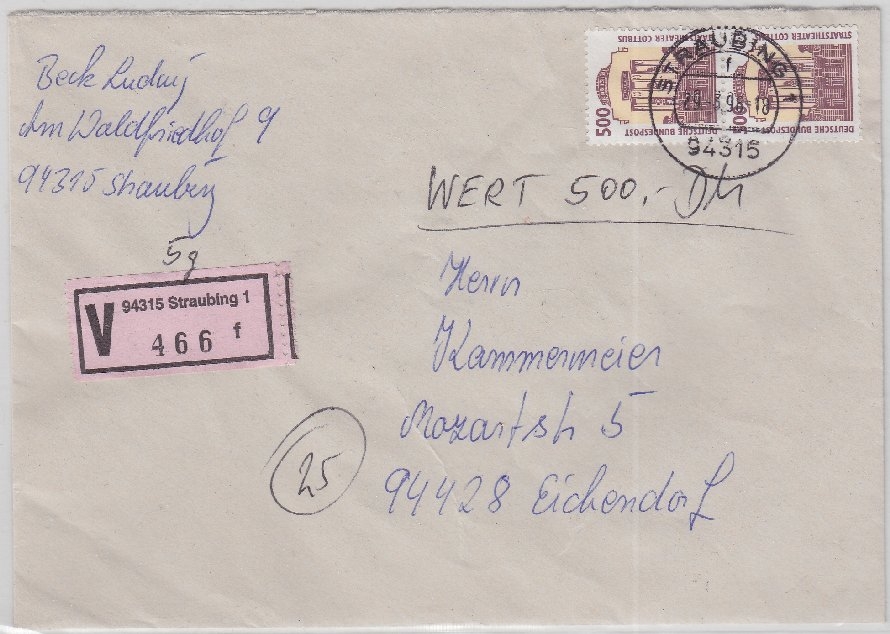 Beck Ludwig
Am Waldfriedhof 9
94315 Straubing
5g
V 94315 Straubing 1
466 f
STAATSTHEATER COTTBUS
500
DEUTSCHE BUNDESPOST
STAATSTHEATER COTTBUS
DEUTSCHE BUNDESPOST
STRAUBING 1
f
94315
WERT 500,- DM
Herrn
Kammermeier
Mozartstr 5
94428 Eichendorf
25